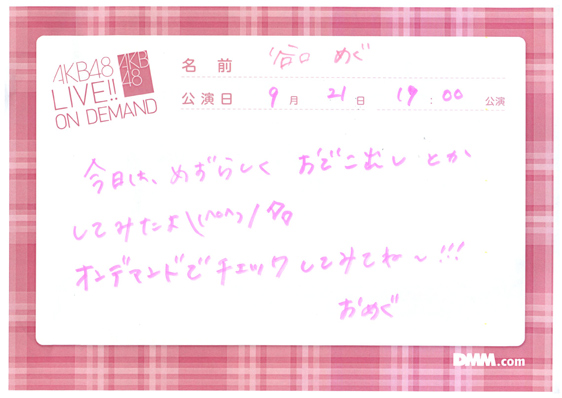 AKB48
LIVE!!
ON DEMAND
AKB
48
名前 谷口 めぐ
公演日 9月21日 19:00 公演
今日は、めずらしく おでこ出し とか
してみたよ\(^o^)/
オンデマンドでチェックしてみてね〜!!!
おめぐ
DMM.com